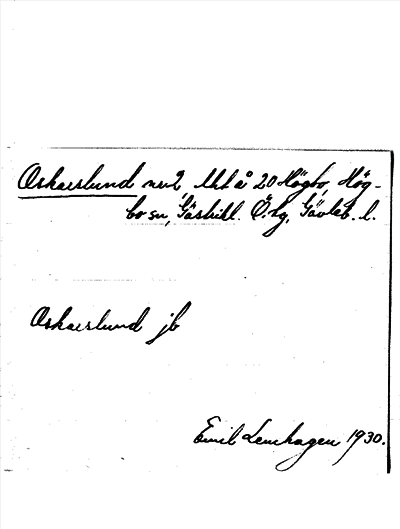 Oskarslund nr 2 lht å 20 Högbo, Hög-
bo sn, Gästrikl. Ö. tg, Gävleb. l.
Oskarslund jb
Emil Lenhagen 1930.